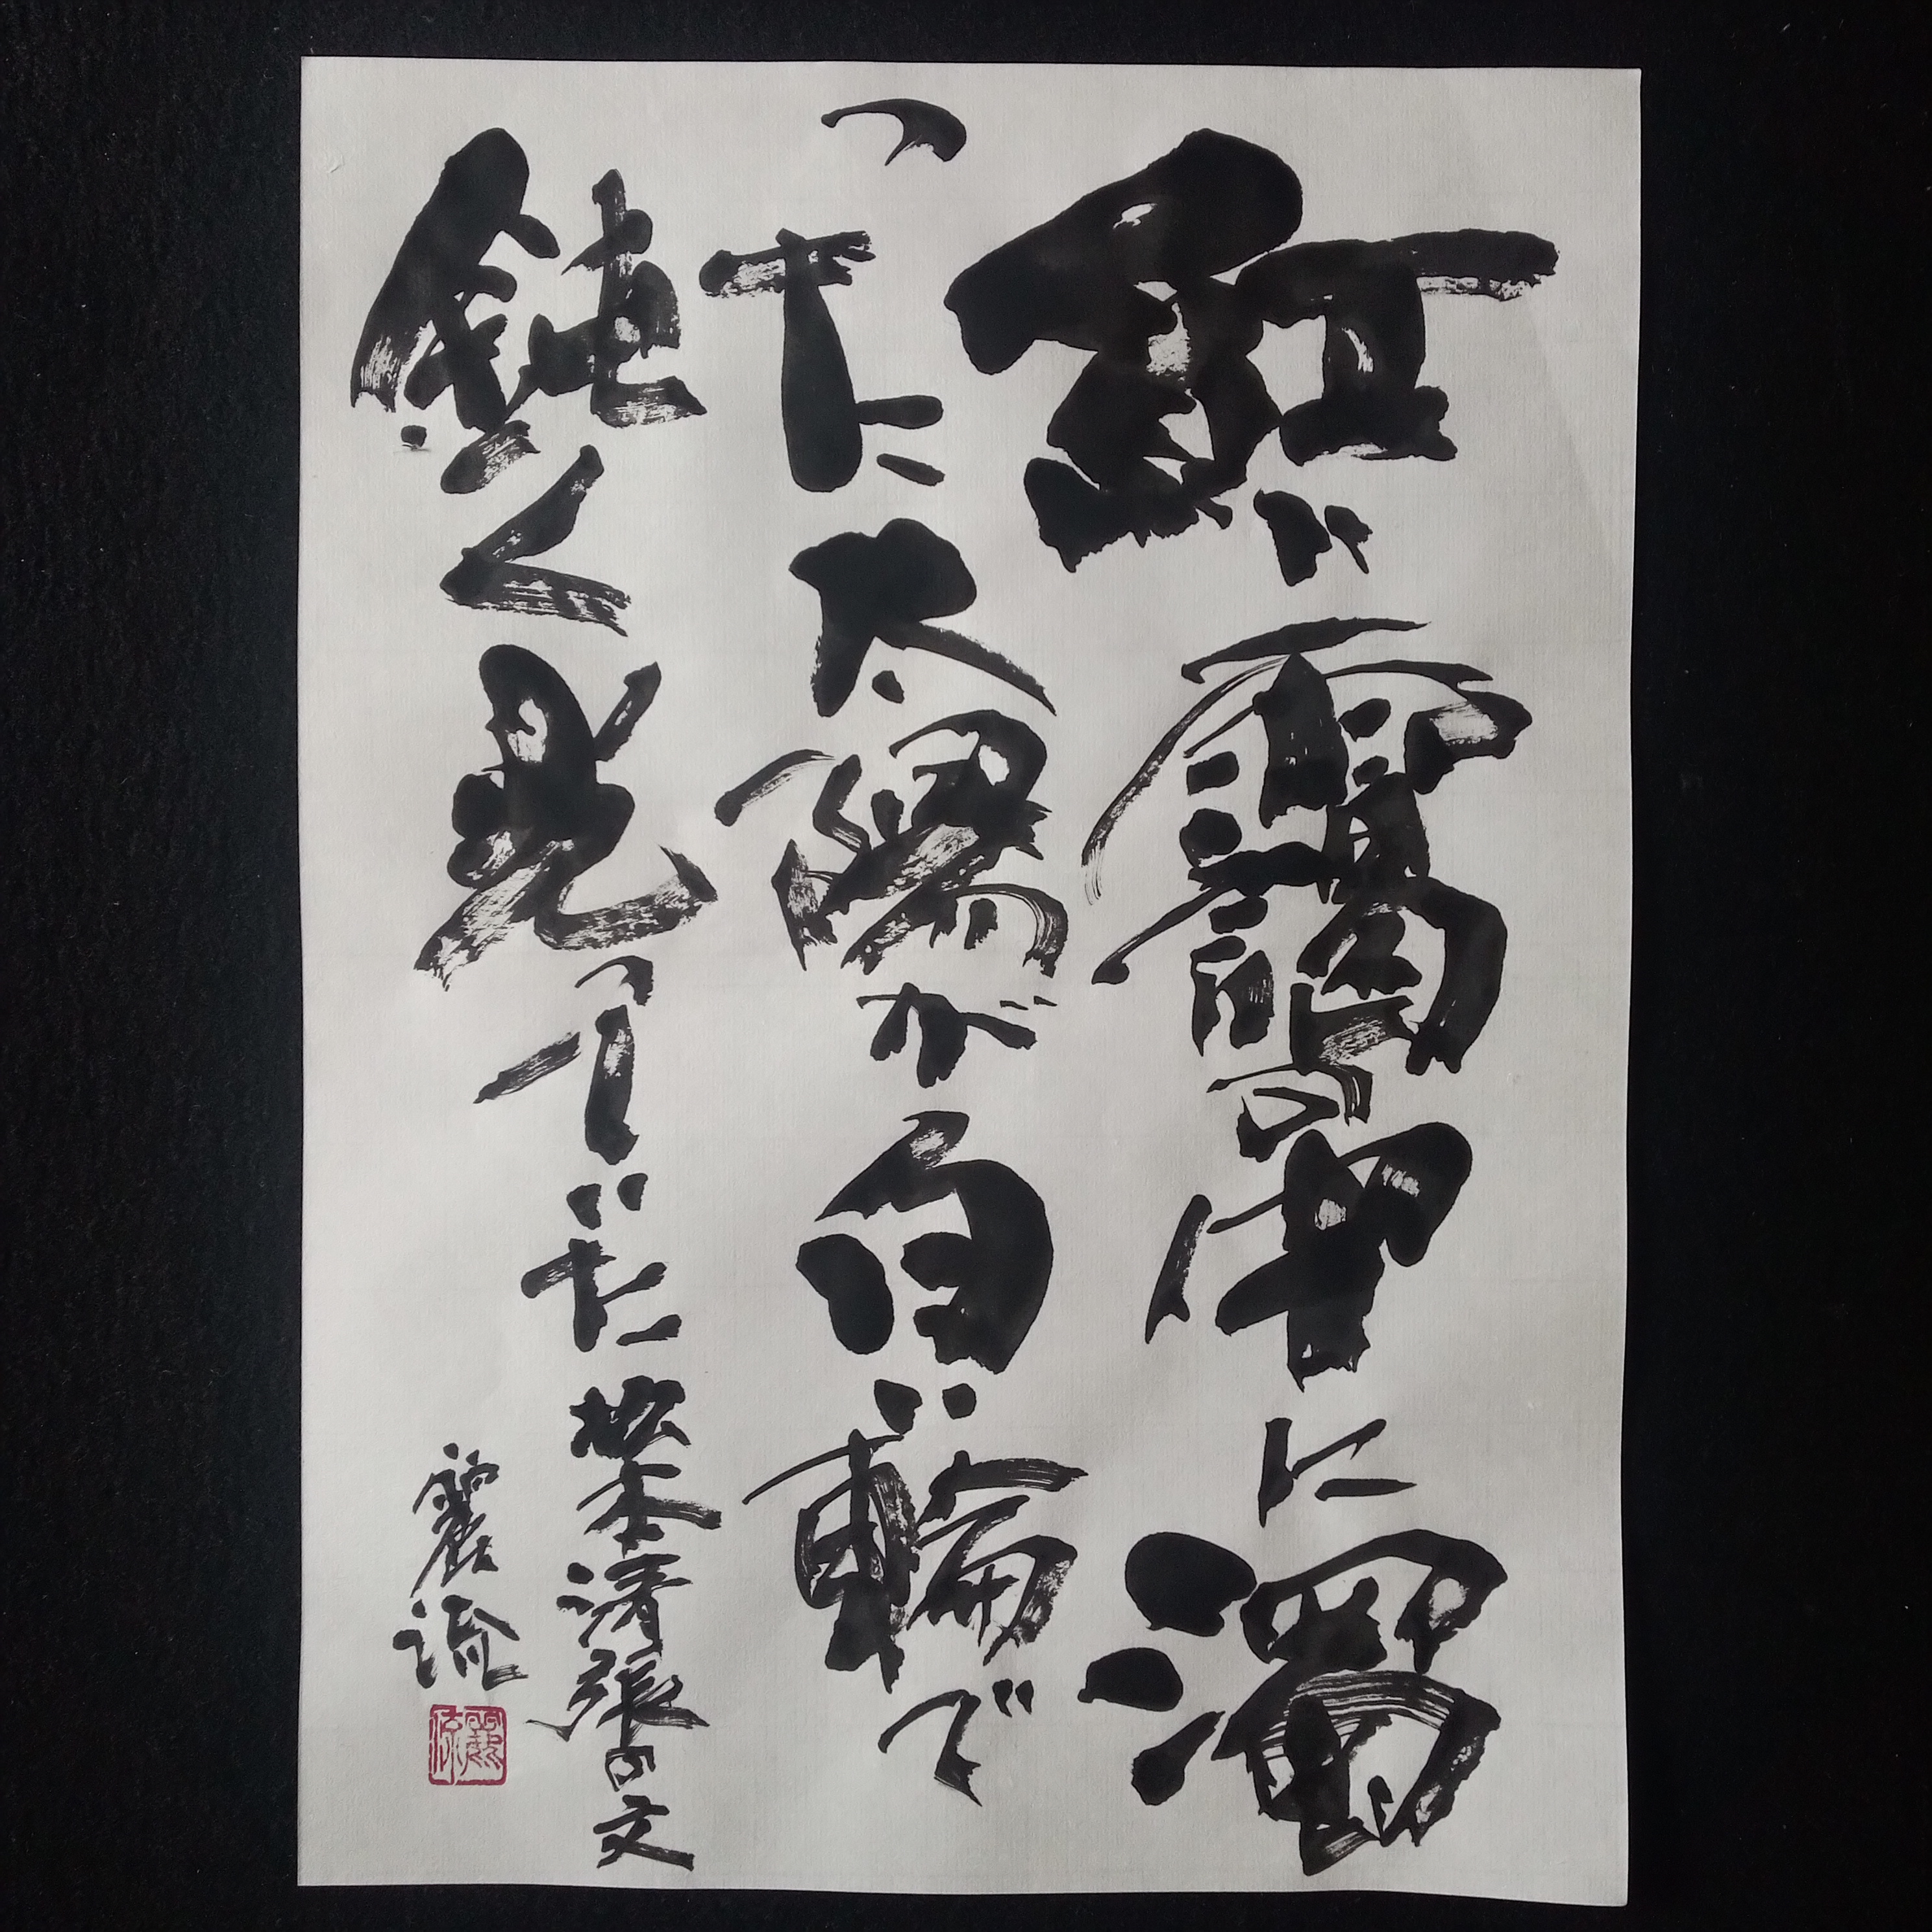 紅い靄の中に濁
った太陽が白い輪で
鈍く光っていた
松本清張の文
麗流